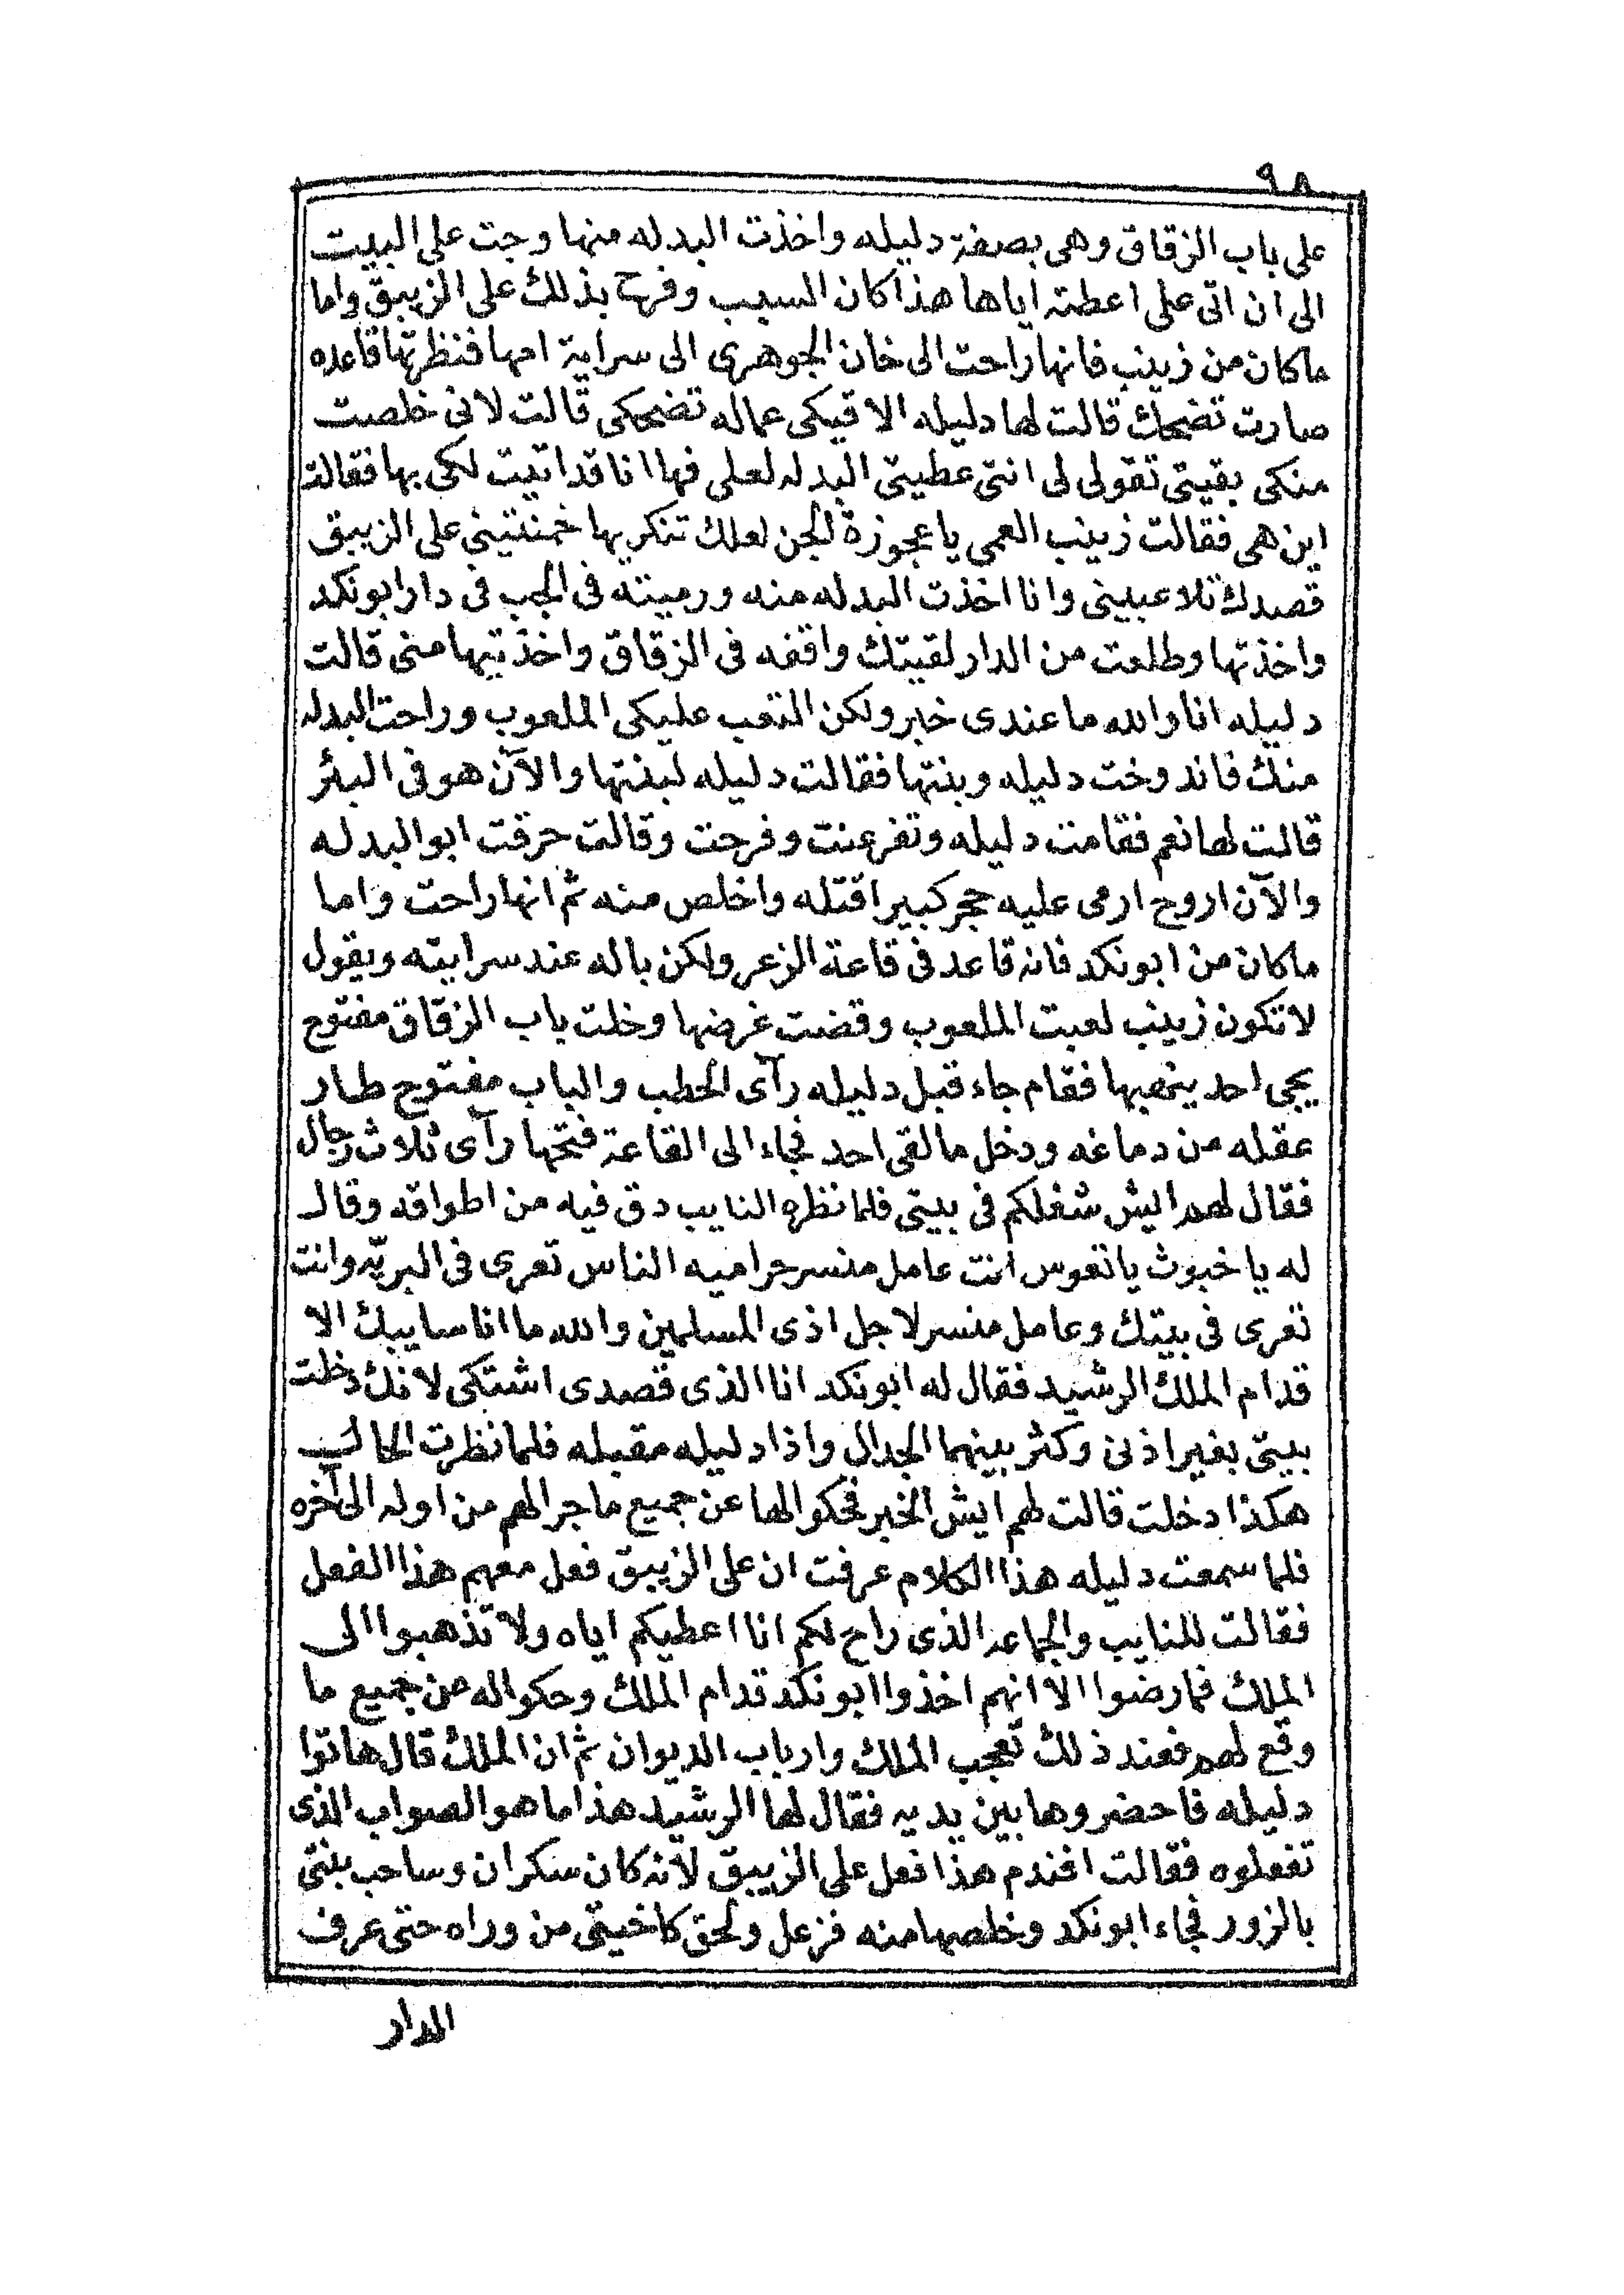 ٩٨
على باب الزقاق وهى بصفة دليله واخذت البدله منها وجت على البيت
الى ان اتى على اعطته اياها هذا كان السبب وفرح بذلك على الزيبق واما
ماكان من زينب فانها راحت الى خان الجوهرى الى سراية امها فنظرتها قاعده
صارت تضحك قالت لها دليله الا قيكى عماله تضحكى قالت لانى خلصت
منكى بقيتى تقولى لى انتى عطيتى البدله لعلى فها انا قد اتيت لكى بها فقالت
اين هى فقالت زينب العمى يا عجوزة الجن لعلك تنكريها خمنتينى على الزيبق
قصدك تلاعبينى وانا اخذت البدله منه ورميته فى الجب فى دار ابونكد
واخذتها وطلعت من الدار لقيتك واقفه فى الزقاق واخذتيها منى قالت
دليله انا والله ما عندى خبر ولكن التعب عليكى الملعوب وراحت البدله
منك فاندوخت دليله وبنتها فقالت دليله لبنتها والآن هو فى البئر
قالت لها نعم فقامت دليله وتفرعنت وفرحت وقالت حرقت ابو البدله
والآن اروح ارمى عليه حجر كبير اقتله واخلص منه ثم انها راحت واما
ماكان من ابونكد فانه قاعد فى قاعة الزعر ولكن باله عند سرايته ويقول
لا تكون زينب لعبت الملعوب وقضت غرضها وخلت باب الزقاق مفتوح
يجى احد ينهبها فقام جاء قبل دليله رآى الحطب والباب مفتوح طار
عقله من دماغه ودخل ما لقى احد فجاء الى القاعة فتحها رآى ثلاث رجال
فقال لهم ايش شغلكم فى بيتى فلما نظره النايب دق فيه من اطواقه وقال
له يا خبوث يا نعوس انت عامل منسر حراميه الناس تعرى فى البريّه وانت
تعرى فى بيتك وعامل منسر لاجل اذى المسلمين والله ما انا سايبك الا
قدام الملك الرشيد فقال له ابونكد انا الذى قصدى اشتكى لانك دخلت
بيتى بغير اذنى وكثر بينهما الجدال واذا دليله مقبله فلما نظرت الحال
هكذا دخلت قالت لهم ايش الخبر فحكوا لها عن جميع ما جرا لهم من اوله الى آخره
فلما سمعت دليله هذا الكلام عرفت ان على الزيبق فعل معهم هذا الفعل
فقالت للنايب والجماعه الذى راح لكم انا اعطيكم اياه ولا تذهبوا الى
الملك فما رضوا الا انهم اخذوا ابونكد قدام الملك وحكوا له عن جميع ما
وقع لهم فعند ذلك تعجب الملك وارباب الديوان ثم ان الملك قال هاتوا
دليله فاحضروها بين يديه فقال لها الرشيد هذا ما هو الصواب الذى
تفعلوه فقالت افندم هذا فعل على الزيبق لانه كان سكران وساحب بنتى
بالزور فجاء ابونكد وخلصها منه فزعل ولحق كاخيتى من وراه حتى عرف
الدار